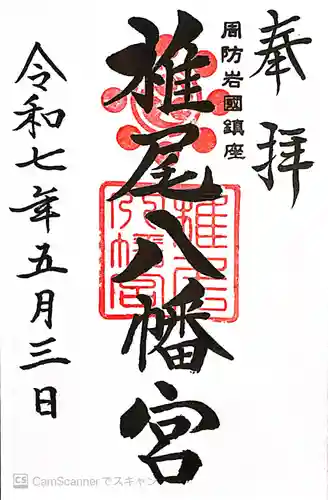 奉拝
周防岩國鎮座
椎尾八幡宮
令和七年五月三日
椎尾八幡宮
CS CamScannerでスキャン